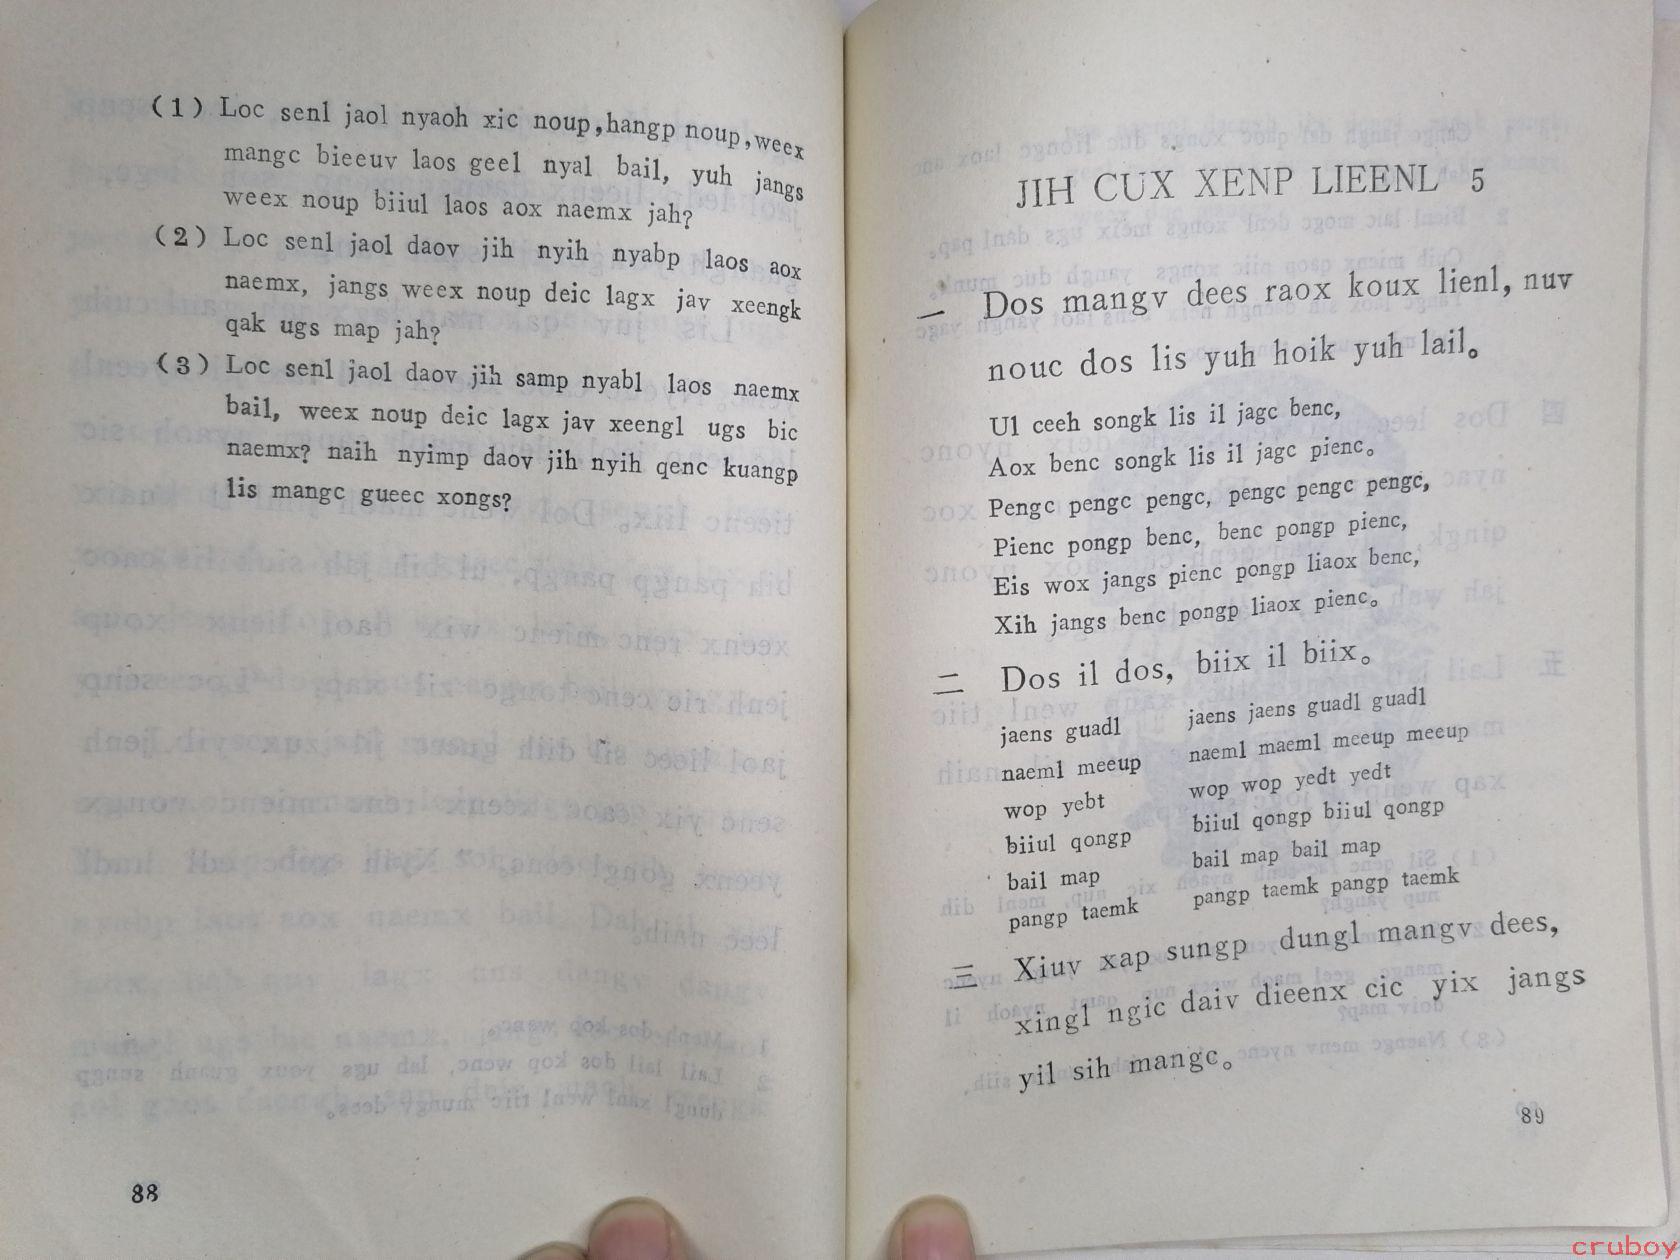 (1) Loc senl jaol nyaoh xic noup,hangp noup,weex
mangc bieeuv laos geel nyal bail, yuh jangs
weex noup biiul laos aox naemx jah?
(2) Loc senl jaol daov jih nyih nyabp laos aox
naemx, jangs weex noup deic lagx jav xeengk
qak ugs map jah?
(3) Loc senl jaol daov jih samp nyabl laos naemx
bail, weex noup deic lagx jav xeengl ugs bic
naemx? naih nyimp daov jih nyih qenc kuangp
lis mangc gueec xongs?
88
JIH CUX XENP LIEENL 5
一 Dos mangv dees raox koux lienl, nuv
nouc dos lis yuh hoik yuh lail。
Ul ceeh songk lis il jagc benc,
Aox benc songk lis il jagc pienc。
Pengc pengc pengc, pengc pengc pengc,
Pienc pongp benc, benc pongp pienc,
Eis wox jangs pienc pongp liaox benc,
Xih jangs benc pongp liaox pienc。
二 Dos il dos, biix il biix。
jaens guadl jaens jaens guadl guadl
naeml meeup naeml maeml meeup meeup
wop yebt wop wop yedt yedt
biiul qongp biiul qongp biiul qongp
bail map bail map bail map
pangp taemk pangp taemk pangp taemk
三 Xiuv xap sungp dungl mangv dees,
xingl ngic daiv dieenx cic yix jangs
yil sih mangc。
89
cruboy